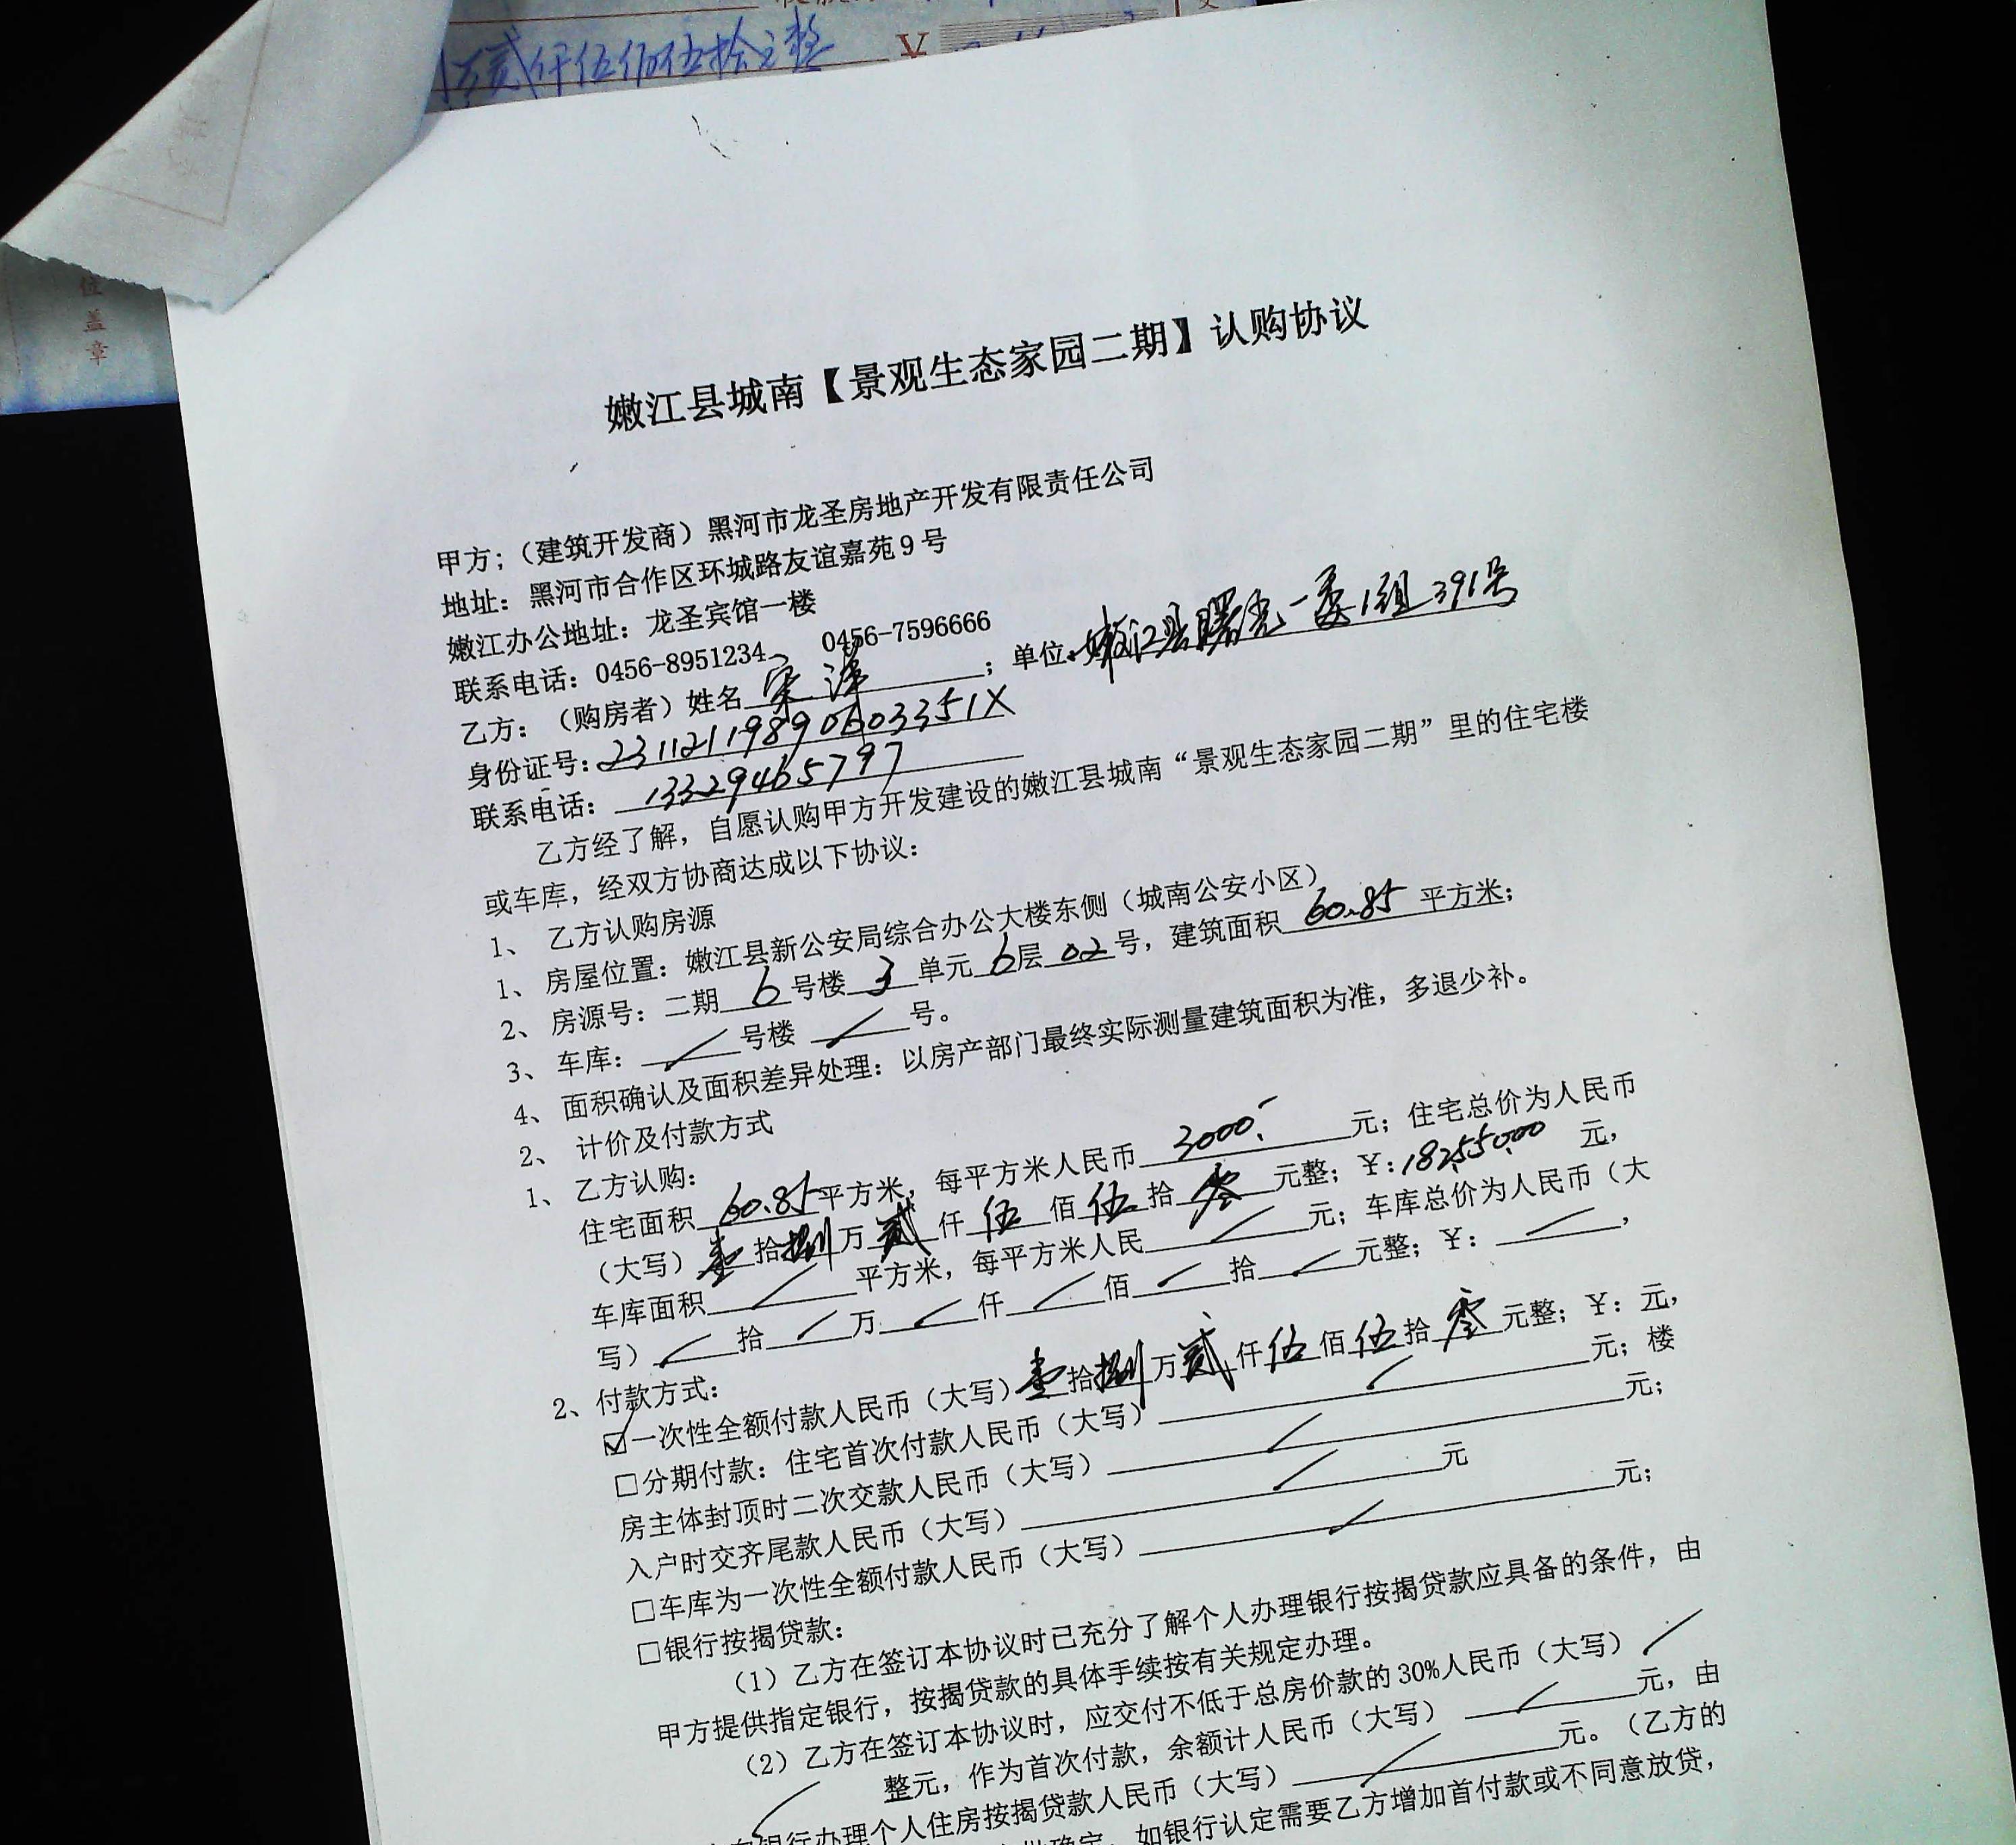 万贰仟伍佰伍拾元整
¥
位盖章
嫩江县城南【景观生态家园二期】认购协议
甲方；（建筑开发商）黑河市龙圣房地产开发有限责任公司
地址：黑河市合作区环城路友谊嘉苑9号
嫩江办公地址：龙圣宾馆一楼
联系电话：0456-8951234、 0456-7596666
乙方：（购房者）姓名 宋洋 ；单位：嫩江县曙光一委1组391号
身份证号：23112119890603351X
联系电话：13329465797
乙方经了解，自愿认购甲方开发建设的嫩江县城南“景观生态家园二期”里的住宅楼
或车库，经双方协商达成以下协议：
1、 乙方认购房源
1、 房屋位置：嫩江县新公安局综合办公大楼东侧（城南公安小区）
2、 房源号：二期 6 号楼 3 单元 6 层 02 号，建筑面积 60.85 平方米；
3、 车库： 号楼 号。
4、 面积确认及面积差异处理：以房产部门最终实际测量建筑面积为准，多退少补。
2、 计价及付款方式
1、 乙方认购：
住宅面积 60.85 平方米，每平方米人民币 3000.- 元；住宅总价为人民币
（大写）壹拾捌万贰仟伍佰伍拾零元整；¥：182550.00 元，
车库面积 平方米，每平方米人民 元；车库总价为人民币（大
写） 拾 万 仟 佰 拾 元整；¥： ，
2、付款方式：
☑一次性全额付款人民币（大写）壹拾捌万贰仟伍佰伍拾零元整；¥：元，
□分期付款：住宅首次付款人民币（大写） 元；楼
房主体封顶时二次交款人民币（大写） 元；
入户时交齐尾款人民币（大写） 元
□车库为一次性全额付款人民币（大写） 元；
□银行按揭贷款：
（1）乙方在签订本协议时已充分了解个人办理银行按揭贷款应具备的条件，由
甲方提供指定银行，按揭贷款的具体手续按有关规定办理。
（2）乙方在签订本协议时，应交付不低于总房价款的30%人民币（大写）
整元，作为首次付款，余额计人民币（大写） 元，由
银行办理个人住房按揭贷款人民币（大写） 元。（乙方的
确定，如银行认定需要乙方增加首付款或不同意放贷，